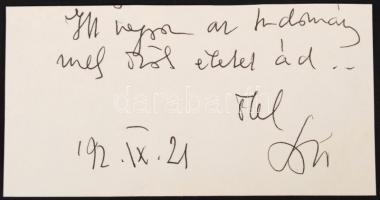 Itt vagyon az tudomány
mely örök életet ád ...
'92. IX. 21
darabanth